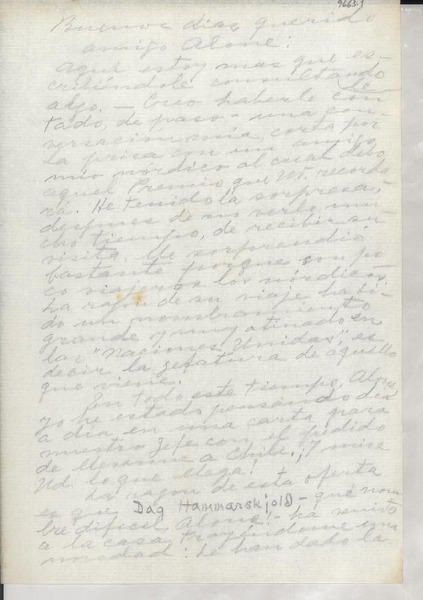 9663.J
Buenos días, querido
amigo Alone:
Aquí estoy mas que es-
cribiéndole consultando
algo. — Creo haberle con-
tado, de paso — una con-
versación mía, corta por
la prisa con un amigo
mío nórdico al cual debo
aquel Premio que Ud. recorda-
rá. He tenido la sorpresa,
después de no verlo mu-
cho tiempo, de recibir su
visita. Me sorprendió
bastante porque son po-
co viajeros los nórdicos.
La razón de su viaje ha si-
do un nombramiento
grande y muy atinado en
las "Naciones Unidas", es
decir la jefatura de aquello
que viene.
En todo este tiempo, Alone,
yo he estado pensando día
a día en una carta para
nuestro Jefe con el pedido
de llevarme a Chile. ¡Y mire
Ud. lo que llega!
La razón de esta oferta
es que Dag Hammarskjold — qué nom-
bre difícil, Alone! — ha venido
a la casa trayéndome una
novedad: le han dado la